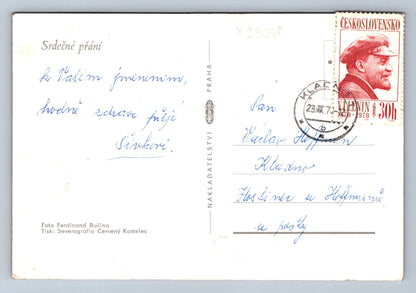 Srdečné přání
k Vašim jmeninám,
hodně zdraví přejí
Sivkovi
Foto Ferdinand Bučina
Tisk: Severografia Červený Kostelec
NAKLADATELSTVÍ PRAHA
ČESKOSLOVENSKO
LENIN
1970
30h
KLADNO
Pan
Václav Hoffman
Kladno
Hostinec u Hoffmanů
u pošty